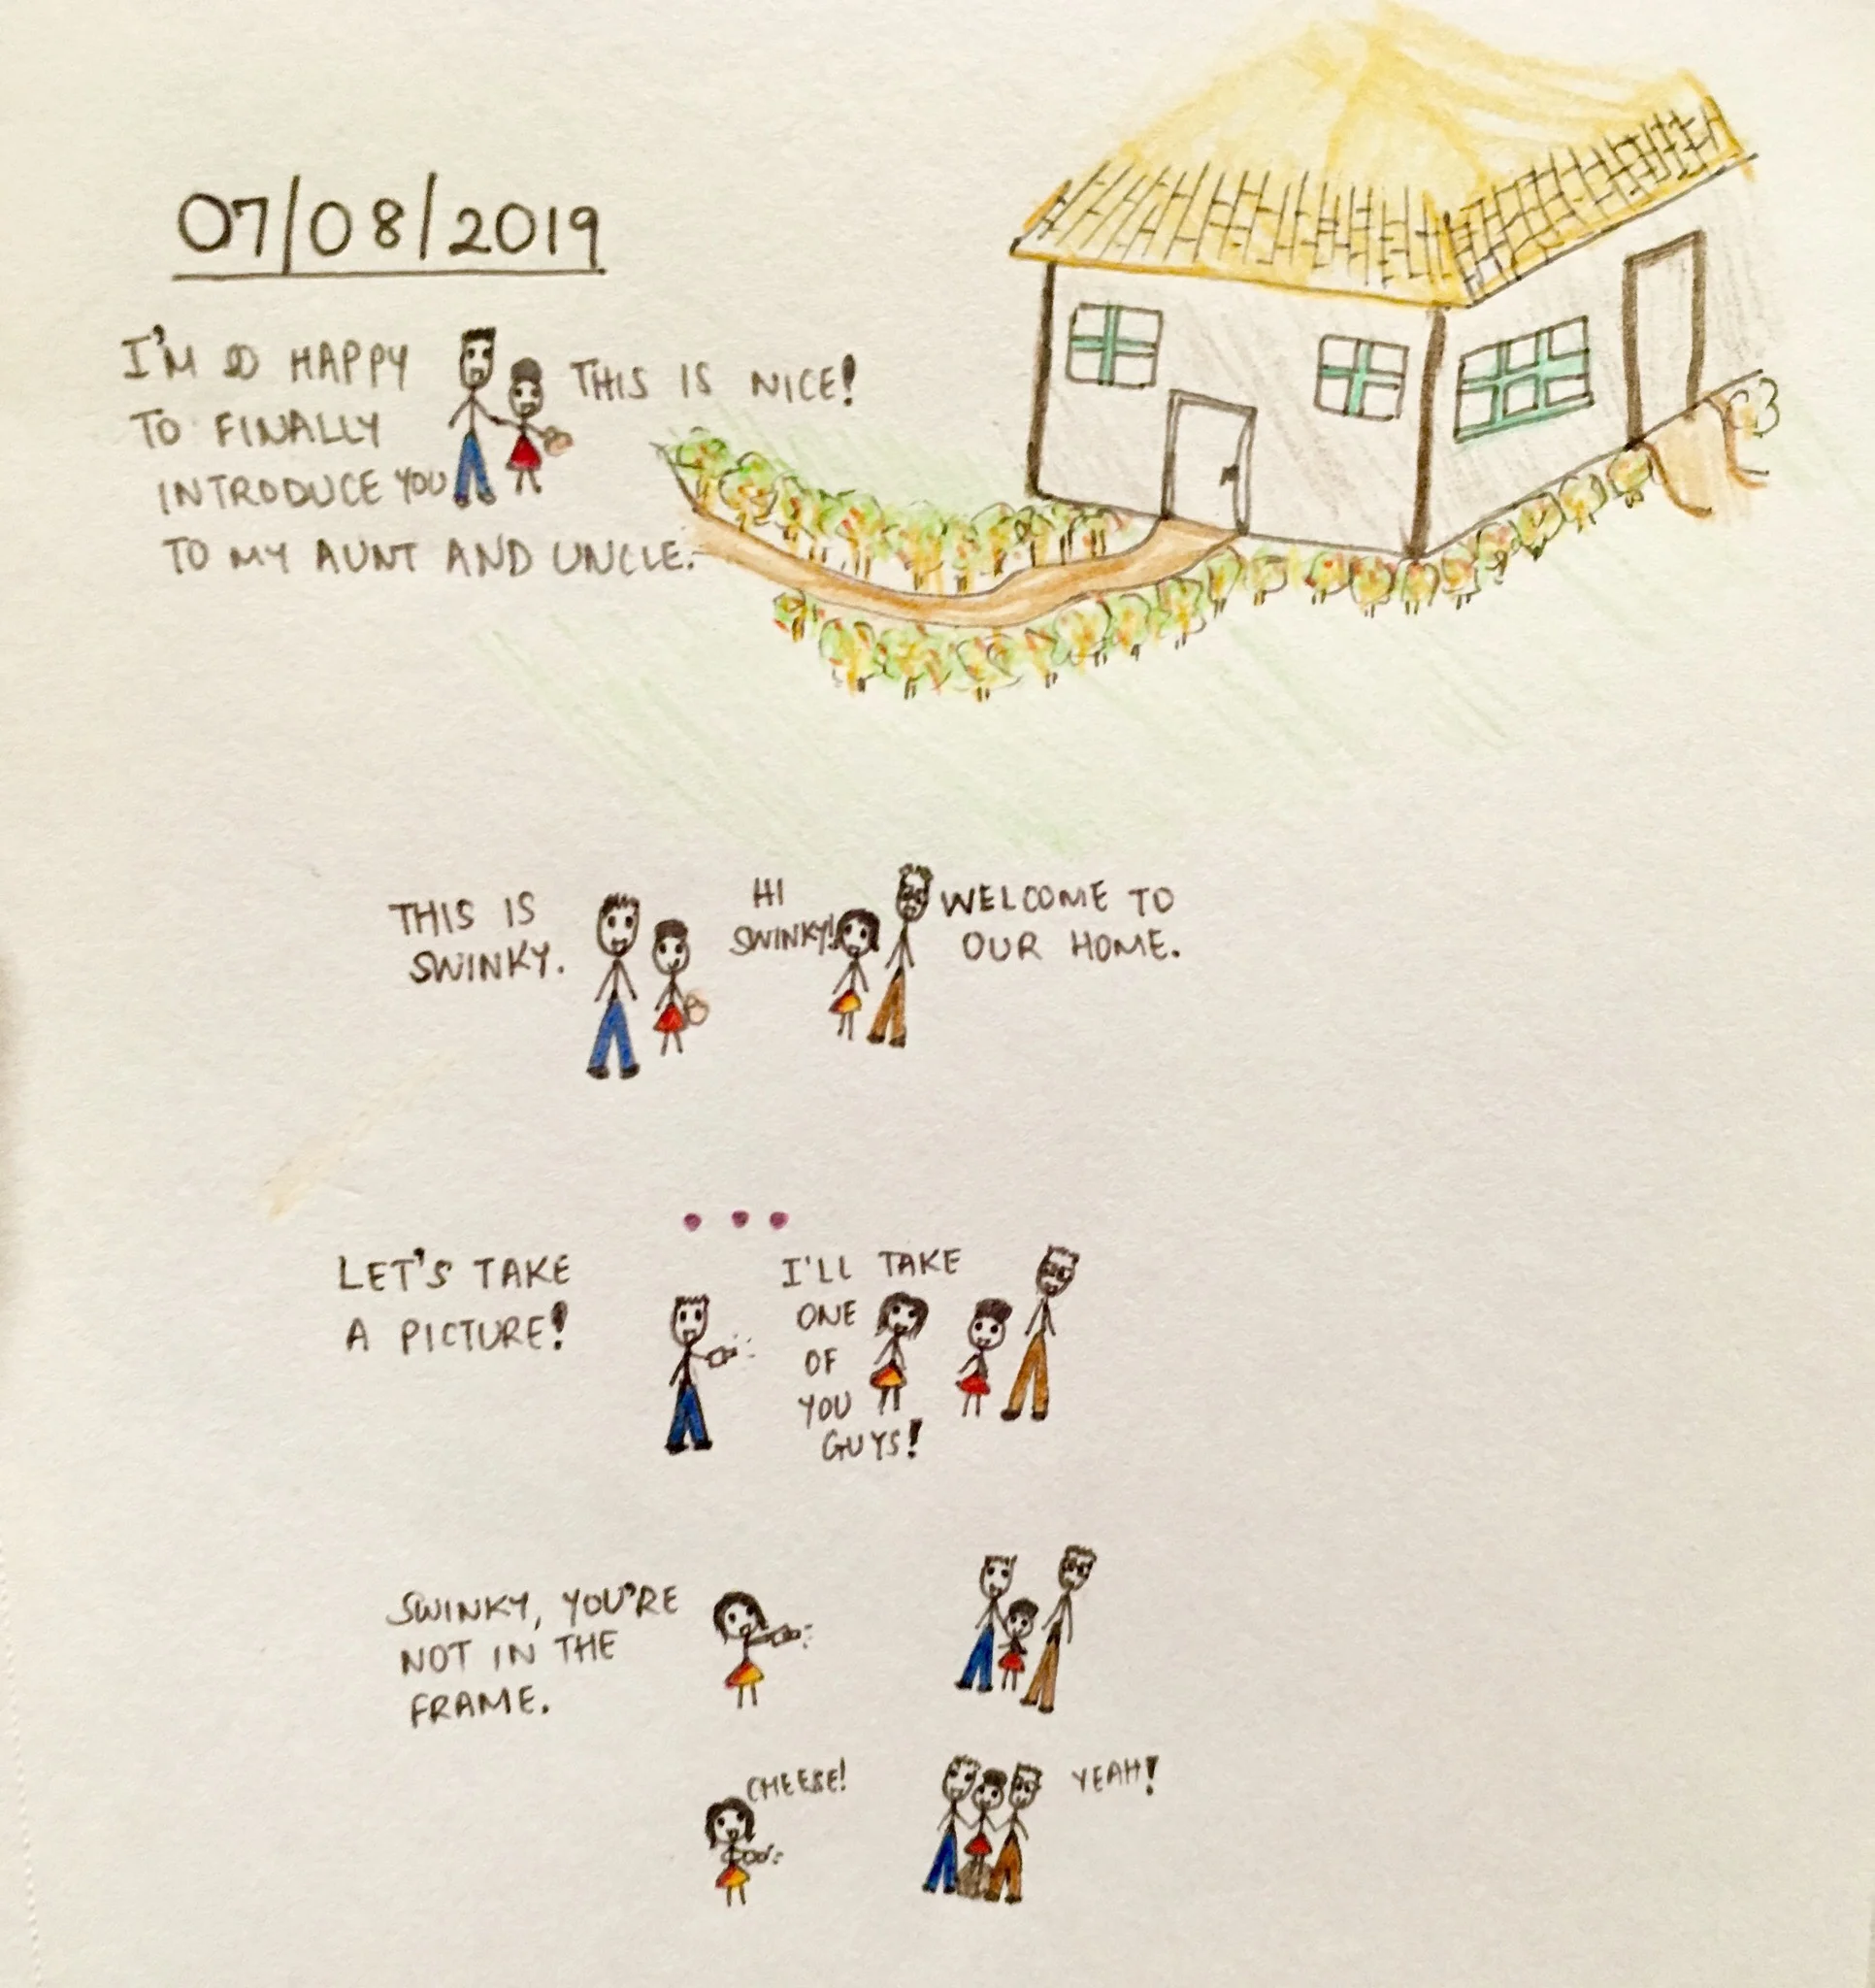 07/08/2019
I'M SO HAPPY
TO FINALLY
INTRODUCE YOU
TO MY AUNT AND UNCLE.
THIS IS NICE!
THIS IS
SWINKY.
HI
SWINKY!
WELCOME TO
OUR HOME.
LET'S TAKE
A PICTURE!
I'LL TAKE
ONE
OF
YOU
GUYS!
SWINKY, YOU'RE
NOT IN THE
FRAME.
CHEESE!
YEAH!